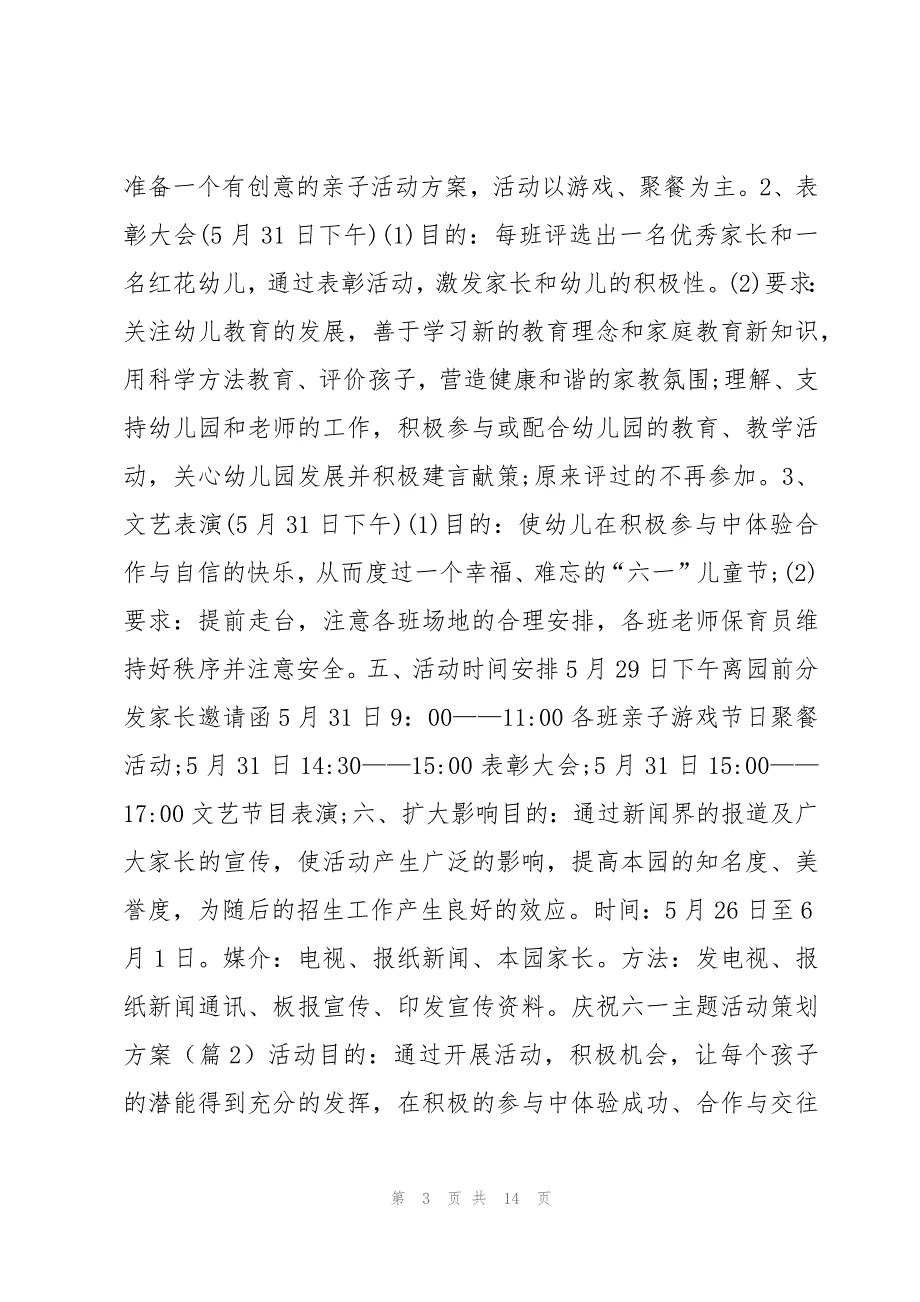 准备一个有创意的亲子活动方案，活动以游戏、聚餐为主。2、表
彰大会(5 月 31 日下午)(1)目的：每班评选出一名优秀家长和一
名红花幼儿，通过表彰活动，激发家长和幼儿的积极性。(2)要求：
关注幼儿教育的发展，善于学习新的教育理念和家庭教育新知识，
用科学方法教育、评价孩子，营造健康和谐的家教氛围;理解、支
持幼儿园和老师的工作，积极参与或配合幼儿园的教育、教学活
动，关心幼儿园发展并积极建言献策;原来评过的不再参加。3、
文艺表演(5 月 31 日下午)(1)目的：使幼儿在积极参与中体验合
作与自信的快乐，从而度过一个幸福、难忘的“六一”儿童节;(2)
要求：提前走台，注意各班场地的合理安排，各班老师保育员维
持好秩序并注意安全。五、活动时间安排 5 月 29 日下午离园前分
发家长邀请函 5 月 31 日 9：00——11:00 各班亲子游戏节日聚餐
活动;5 月 31 日 14:30——15:00 表彰大会;5 月 31 日 15:00——
17:00 文艺节目表演;六、扩大影响目的：通过新闻界的报道及广
大家长的宣传，使活动产生广泛的影响，提高本园的知名度、美
誉度，为随后的招生工作产生良好的效应。时间：5 月 26 日至 6
月 1 日。媒介：电视、报纸新闻、本园家长。方法：发电视、报
纸新闻通讯、板报宣传、印发宣传资料。庆祝六一主题活动策划
方案（篇 2）活动目的：通过开展活动，积极机会，让每个孩子
的潜能得到充分的发挥，在积极的参与中体验成功、合作与交往
第 3 页 共 14 页